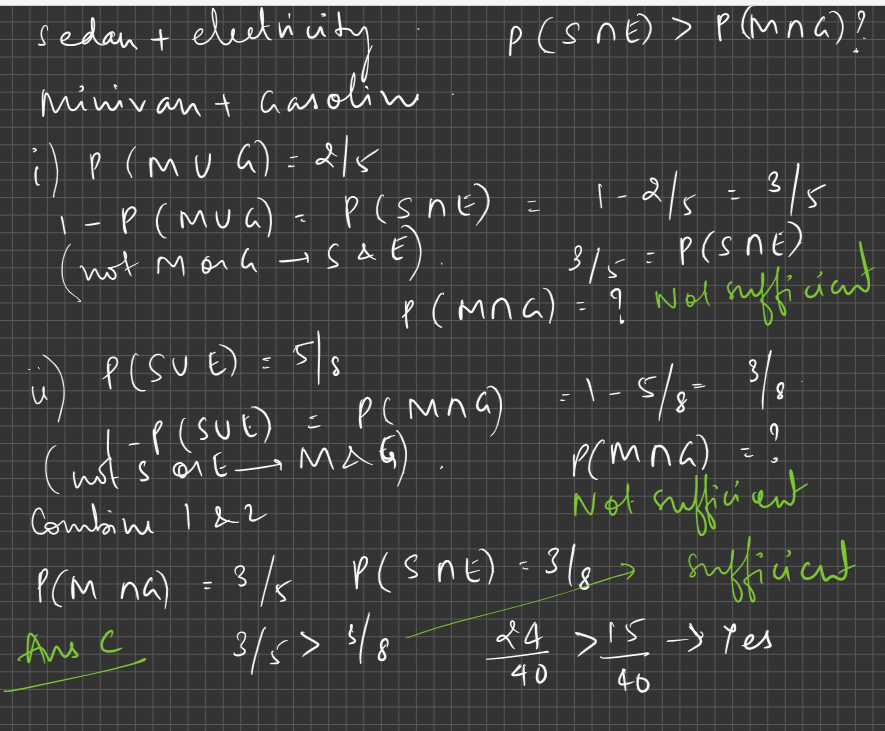 sedan + electricity P(S ∩ E) > P(M ∩ G)?
Minivan + Gasolin
i) P(M ∪ G) = 2/5
1 - P(M ∪ G) = P(S ∩ E) = 1 - 2/5 = 3/5
(not M or G → S & E). 3/5 = P(S ∩ E)
P(M ∩ G) = ? Not sufficient
ii) P(S ∪ E) = 5/8
1 - P(S ∪ E) = P(M ∩ G) = 1 - 5/8 = 3/8
(not S or E → M & G). P(M ∩ G) = ?
Not sufficient
Combine 1 & 2
P(M ∩ G) = 3/5 P(S ∩ E) = 3/8 → sufficient
Ans C 3/5 > 3/8 24/40 > 15/40 → Yes